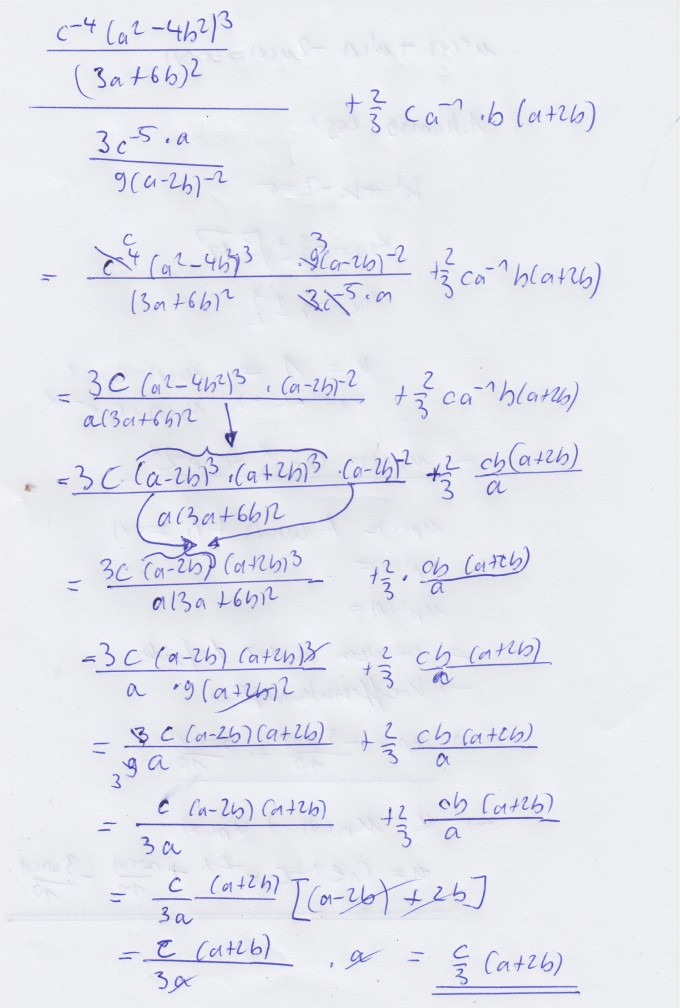 c⁻⁴ (a² - 4b²)³
(3a + 6b)²
+ 2/3 ca⁻¹ · b (a+2b)
3c⁻⁵ · a
9(a-2b)⁻²
= c⁻⁴ c (a² - 4b²)³ · 9 3 (a-2b)⁻² / (3a+6b)² 3c⁻⁵ · a + 2/3 ca⁻¹ b(a+2b)
= 3c (a² - 4b²)³ · (a-2b)⁻² / a(3a+6b)² + 2/3 ca⁻¹ b(a+2b)
= 3c (a-2b)³ · (a+2b)³ · (a-2b)⁻² / a(3a+6b)² + 2/3 cb(a+2b) / a
= 3c (a-2b) (a+2b)³ / a(3a+6b)² + 2/3 · cb (a+2b) / a
= 3c (a-2b) (a+2b)³ / a · 9(a+2b)² + 2/3 cb (a+2b) / a
= 3 c (a-2b)(a+2b) / 9 3 a + 2/3 cb (a+2b) / a
= c (a-2b) (a+2b) / 3a + 2/3 cb (a+2b) / a
= c (a+2b) / 3a [(a-2b) + 2b]
= c (a+2b) / 3a · a = c/3 (a+2b)